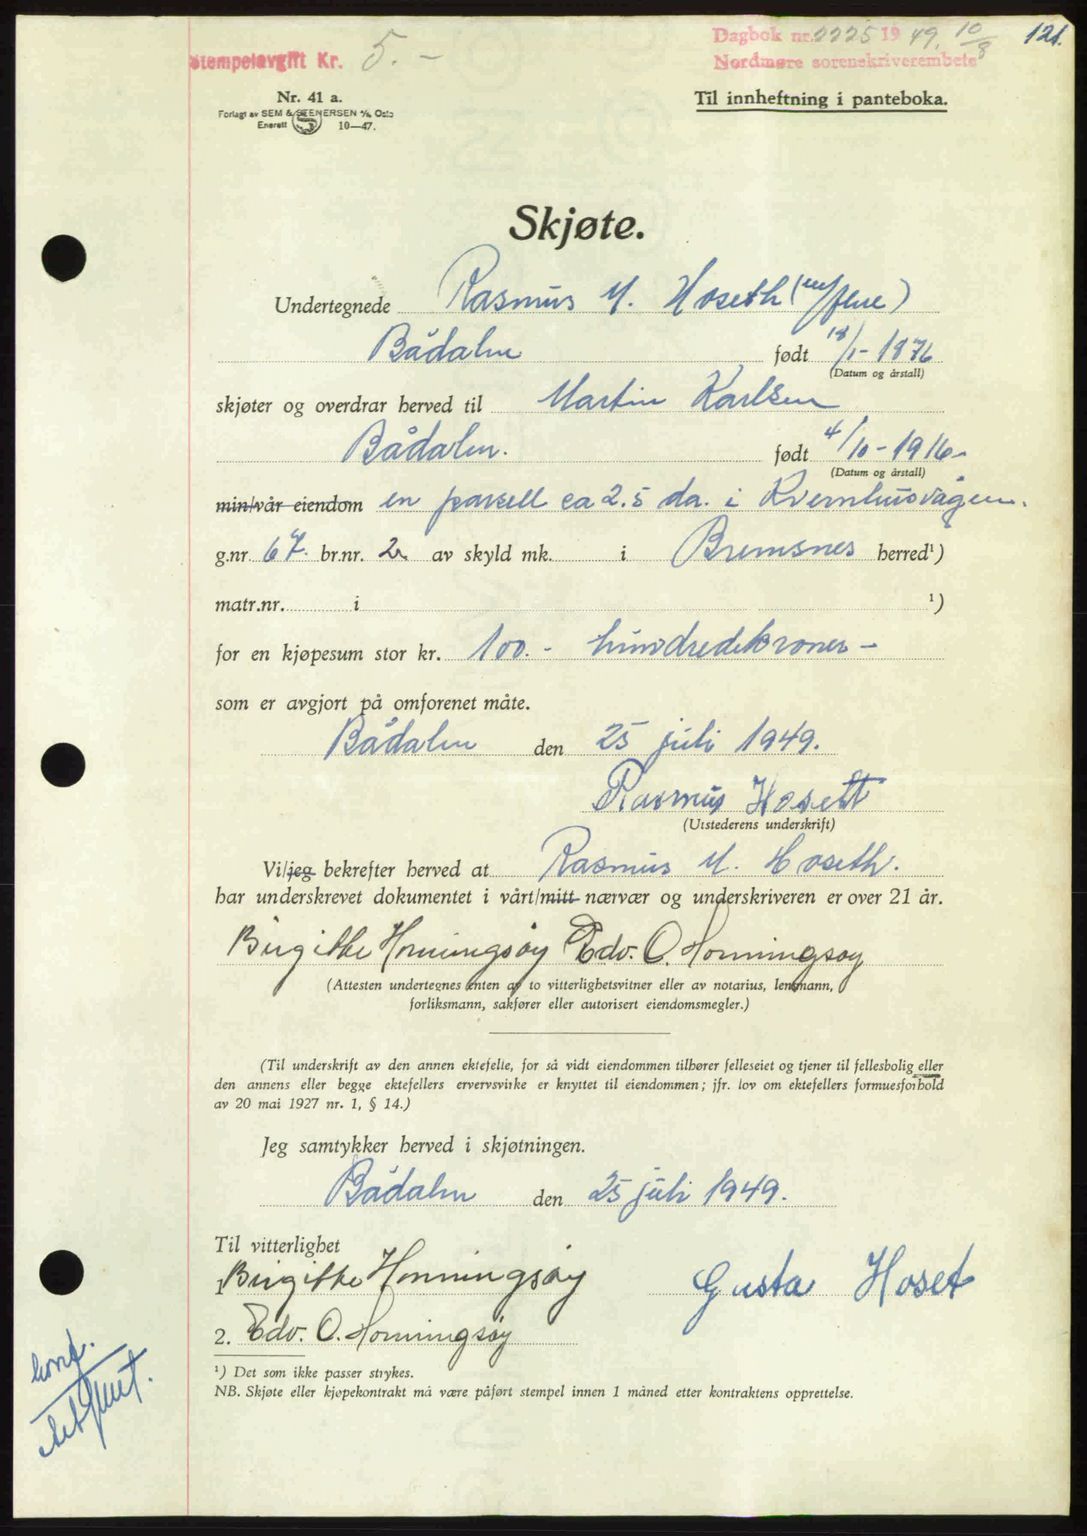 Stempelavgift Kr. 5. –
Dagbok nr. 2225 19 49, 10/8 121.
Nordmøre sorenskriverembete
Nr. 41 a.
Forlagt av SEM & STENERSEN A/S, Oslo
Enerett 10—47.
Til innheftning i panteboka.
Skjøte.
Undertegnede Rasmus M. Hoseth
Bådalen født 18/1 - 1876
(Datum og årstall)
skjøter og overdrar herved til Martin Karlsen
Bådalen. født 4/10 - 1916.
(Datum og årstall)
min/vår eiendom en parsell ca 2.5 da. i Kvernhusvågen.
g.nr. 67. br.nr. 2 av skyld mk. i Bremsnes herred¹)
matr.nr. i ¹)
for en kjøpesum stor kr. 100.- hundredekroner –
som er avgjort på omforenet måte.
Bådalen den 25 juli 1949.
Rasmus Hosett
(Utstederens underskrift)
Vi/jeg bekrefter herved at Rasmus M. Hoseth.
har underskrevet dokumentet i vårt/mitt nærvær og underskriveren er over 21 år.
Birgithe Honningsøy Edv. O. Honningsøy
(Attesten undertegnes enten av to vitterlighetsvitner eller av notarius, lensmann,
forliksmann, sakfører eller autorisert eiendomsmegler.)
(Til underskrift av den annen ektefelle, for så vidt eiendommen tilhører felleseiet og tjener til fellesbolig eller
den annens eller begge ektefellers ervervsvirke er knyttet til eiendommen; jfr. lov om ektefellers formuesforhold
av 20 mai 1927 nr. 1, § 14.)
Jeg samtykker herved i skjøtningen.
Bådalen den 25 juli 1949.
Til vitterlighet
1. Birgithe Honningsøy Gusta Hoset
2. Edv. O. Honningsøy
¹) Det som ikke passer strykes.
NB. Skjøte eller kjøpekontrakt må være påført stempel innen 1 måned etter kontraktens opprettelse.